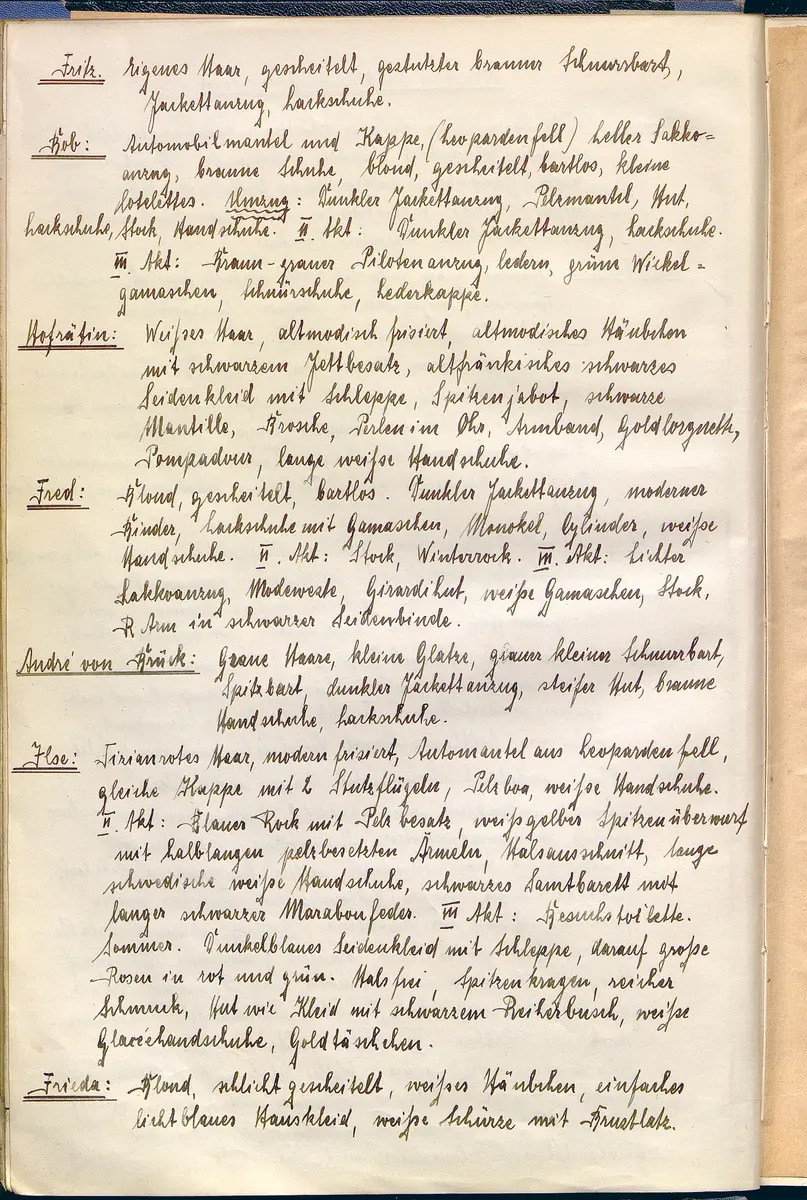 Fritz. Eigenes Haar, gescheitelt, gestutzter brauner Schnurrbart,
Jackettanzug, Lackschuhe.
Bob: Automobilmantel und Kappe, (Leopardenfell) heller Sakko=
anzug, braune Schuhe, blond, gescheitelt, bartlos, kleine
Cotelettes. Umzug: Dunkler Jackettanzug, Pelzmantel, Hut,
Lackschuhe, Stock, Handschuhe. II. Akt: Dunkler Jackettanzug, Lackschuhe.
III. Akt: Braun-grauer Pilotenanzug, ledern, grüne Wickel=
gamaschen, Schnürschuhe, Lederkappe.
Hofrätin: Weißes Haar, altmodisch frisiert, altmodisches Häubchen
mit schwarzem Jettbesatz, altfränkisches schwarzes
Seidenkleid mit Schleppe, Spitzenjabot, schwarze
Mantille, Brosche, Perlen im Ohr, Armband, Goldlorgnette,
Pompadour, lange weiße Handschuhe.
Fred: Blond, gescheitelt, bartlos. Dunkler Jackettanzug, moderner
Binder, Lackschuhe mit Gamaschen, Monokel, Cylinder, weiße
Handschuhe. II. Akt: Stock, Winterrock. III. Akt: Lichter
Sakkoanzug, Modeweste, Girardihut, weiße Gamaschen, Stock,
R Arm in schwarzer Seidenbinde.
André von Brück: Graue Haare, kleine Glatze, grauer kleiner Schnurrbart,
Spitzbart, dunkler Jackettanzug, steifer Hut, braune
Handschuhe, Lackschuhe.
Ilse: Tizianrotes Haar, modern frisiert, Automantel aus Leopardenfell,
gleiche Kappe mit 2 Stutzflügeln, Pelzboa, weiße Handschuhe.
II. Akt: Blauer Rock mit Pelzbesatz, weißgelber Spitzenüberwurf
mit halblangen pelzbesetzten Ärmeln, Halsausschnitt, lange
schwedische weiße Handschuhe, schwarzes Samtbarett mit
langer schwarzer Marabonfeder. III Akt: Besuchstoilette.
Sommer. Dunkelblaues Seidenkleid mit Schleppe, darauf große
Rosen in rot und grün. Hals frei, Spitzenkragen, reicher
Schmuck, Hut wie Kleid mit schwarzem Reiherbusch, weiße
Glacéehandschuhe, Goldtäschchen.
Frieda: Blond, schlicht gescheitelt, weißes Häubchen, einfaches
lichtblaues Hauskleid, weiße Schürze mit Brustlatz.